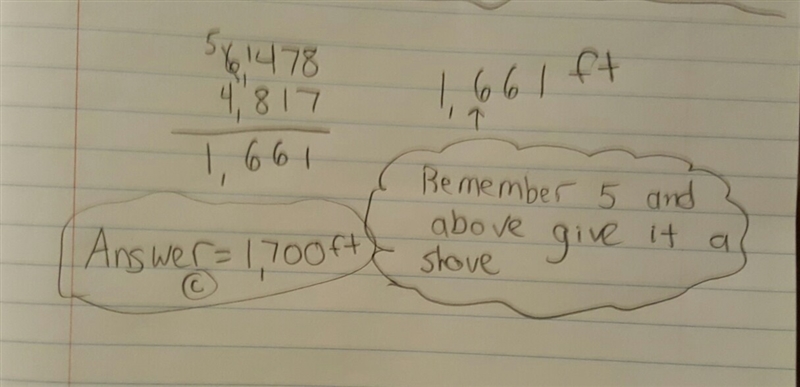 5 6,1478
4,817
1,661
1,661 ft
Remember 5 and
above give it a
shove
Answer = 1,700 ft
C